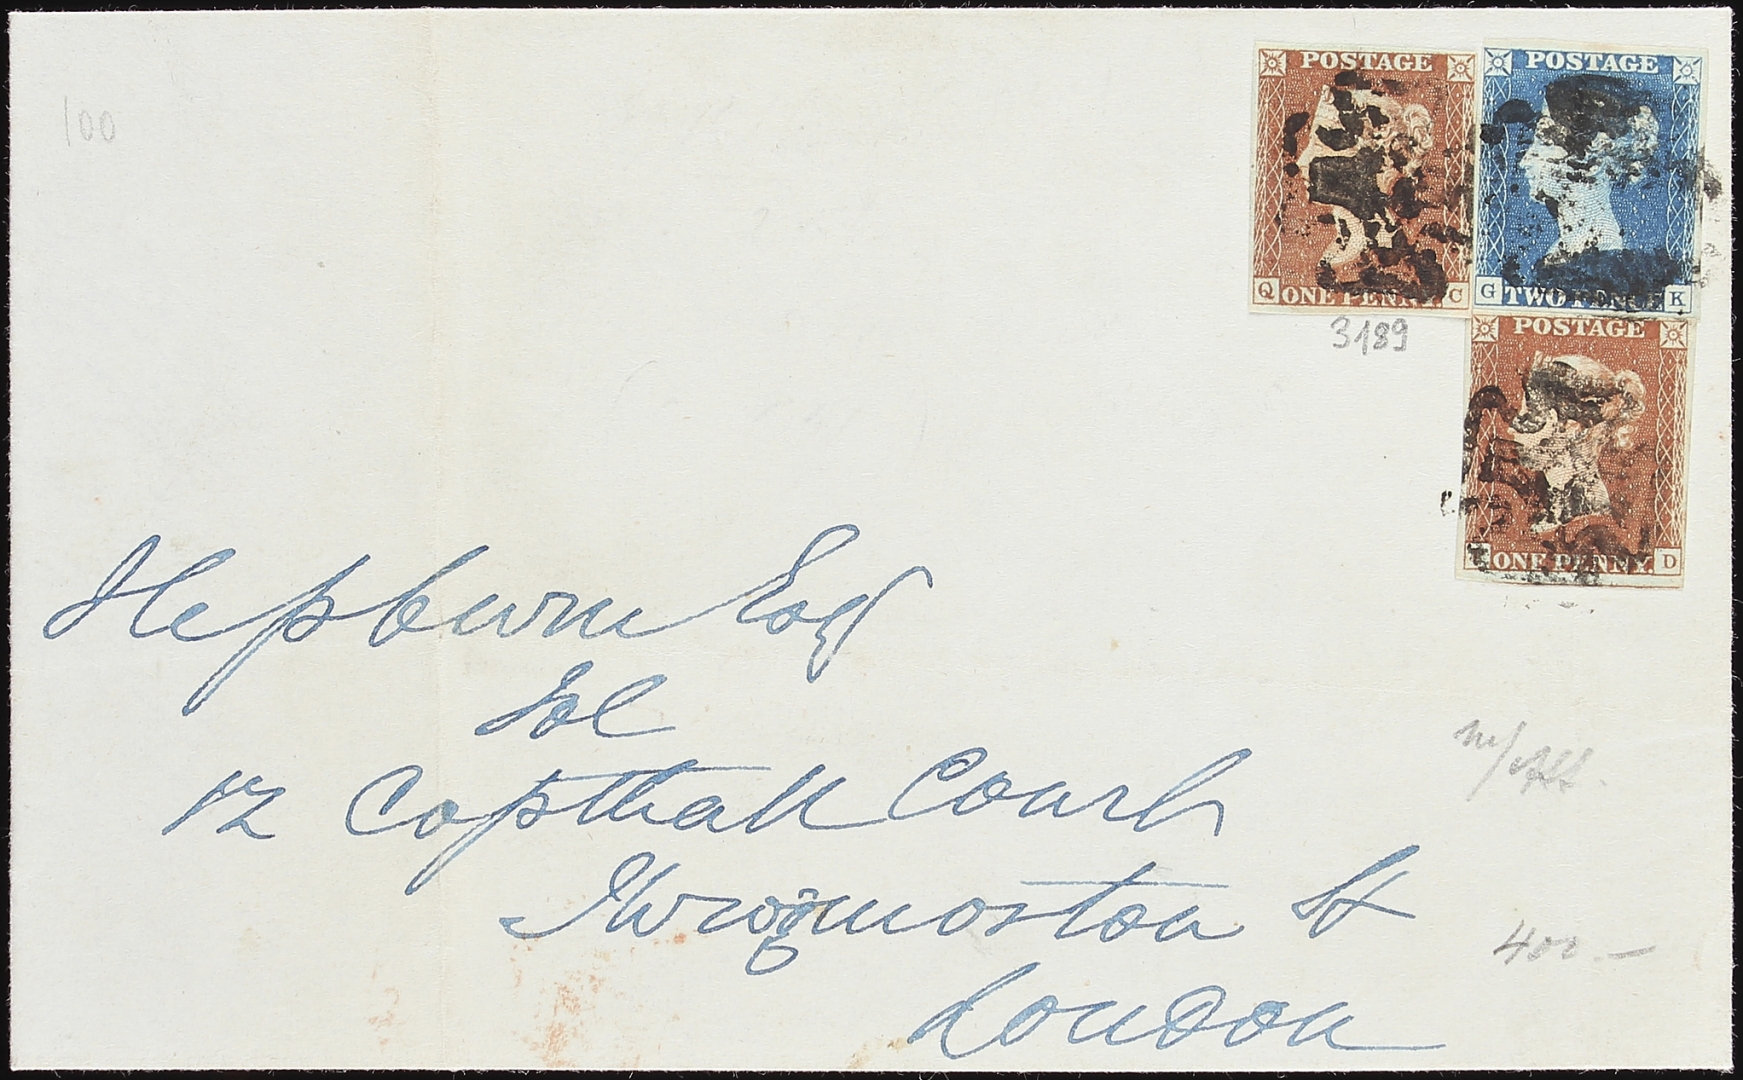 100
POSTAGE
Q ONE PENNY C
POSTAGE
G TWO PENCE K
3189
POSTAGE
ONE PENNY. D
Hepburn Esq
Sol
12 Copthall Court
Throgmorton St
400.—
London